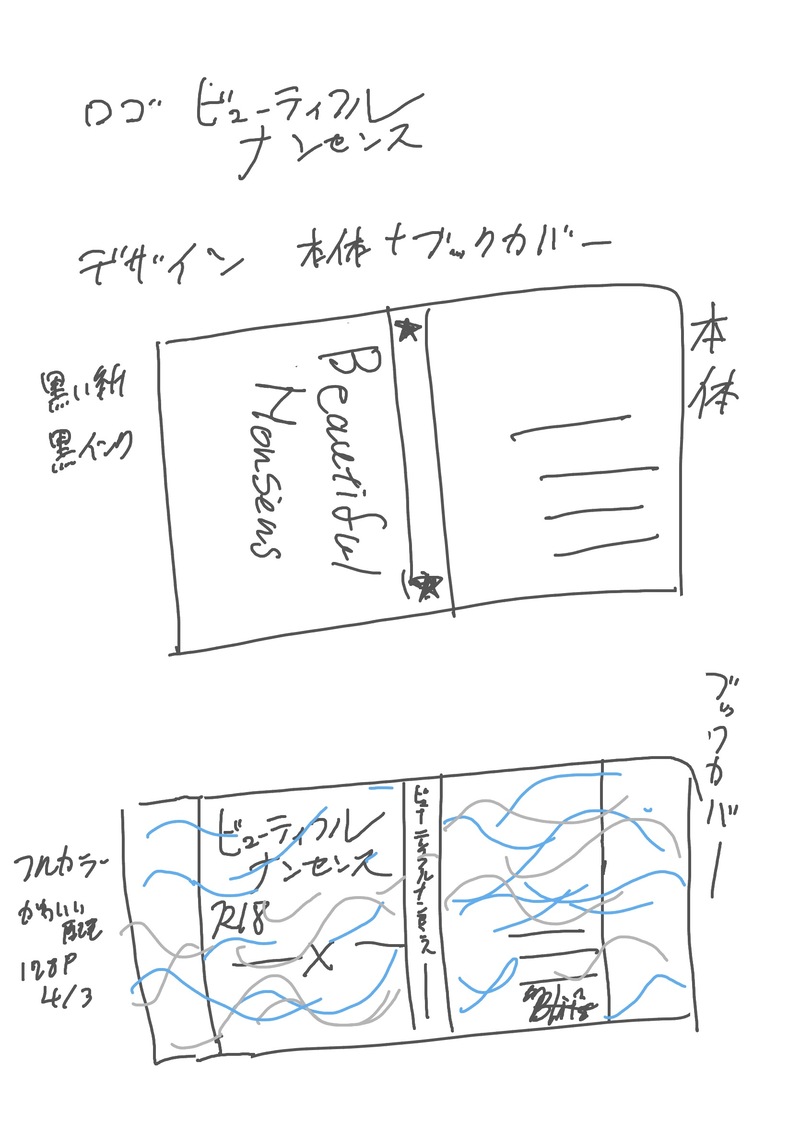 ロゴ ビューティフル
ナンセンス
デザイン 本体+ブックカバー
本体
黒い紙
黒インク
Beautiful
Nonsens
ブックカバー
フルカラー
かわいい
128P
4/3
ビューティフル
ナンセンス
R18
X
ビューティフルナンセンス